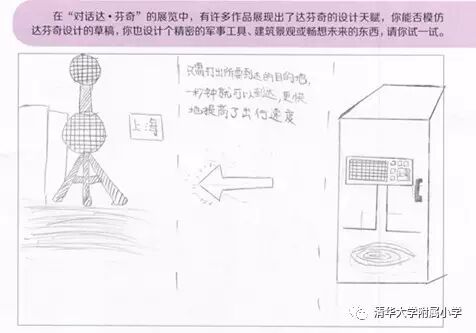 在“对话达·芬奇”的展览中，有许多作品展现出了达芬奇的设计天赋，你能否模仿
达芬奇设计的草稿，你也设计个精密的军事工具、建筑景观或畅想未来的东西，请你试一试。
只需打出所要到达的目的地，
一秒钟就可以到达，更快
地提高了出行速度
上海
清华大学附属小学